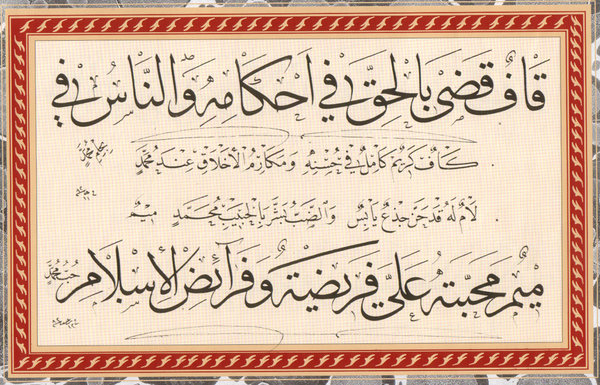 قاف قضى بالحق في أحكامه والناس في
كاف كريم كامل في حسنه ومكارم الأخلاق عند محمد
لام له قد حن جذع يابس والضب بشر بالحبيب محمد ميم
ميم محبته علي فريضة وفرائض الإسلام حب محمد